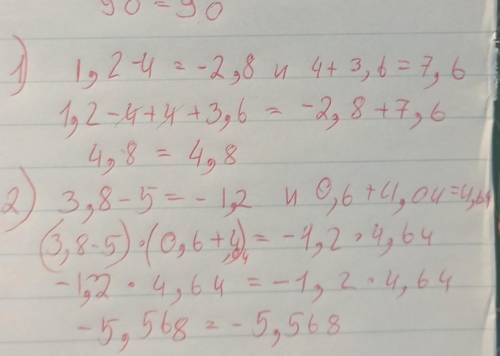 90 = 90
1) 1,2-4 = -2,8 и 4+3,6 = 7,6
1,2-4+4+3,6 = -2,8+7,6
4,8 = 4,8
2) 3,8-5 = -1,2 и 0,6+4,04=4,64
(3,8-5)·(0,6+4,04) = -1,2·4,64
-1,2·4,64 = -1,2·4,64
-5,568 = -5,568